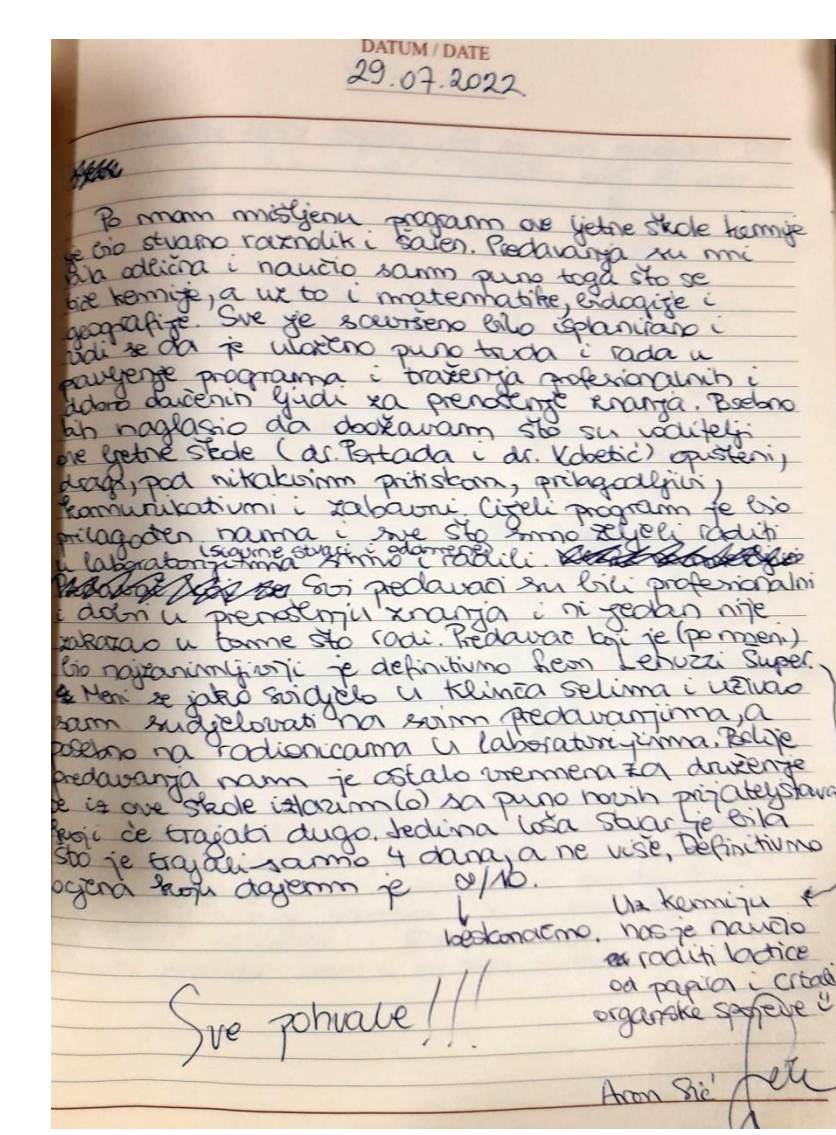 DATUM / DATE
29.07.2022
Po mom mišljenu program ove ljetne škole kemije
je bio stvarno raznolik i šaren. Predavanja su mi
bila odlična i naučio sam puno toga što se
tiče kemije, a uz to i matematike, biologije i
geografije. Sve je savršeno bilo isplanirano i
vidi se da je uloženo puno truda i rada u
pravljenje programa i traženja profesionalnih i
dobro ljudi za prenošenje znanja. Posebno
bih naglasio da obožavam što su voditelji
ove ljetne škole (dr. Portada i dr. Kobetić) opušteni,
dragi, pod nikakvim pritiskom, prilagodljivi,
komunikativni i zabavni. Cijeli program je bio
prilagođen nama i sve što smo željeli raditi
(sigurne stvari i odobrene)
u laboratorijima smo i radili.
Svi predavači su bili profesionalni
i dobri u prenošenju znanja i ni jedan nije
zakazao u tome što radi. Predavač koji je (po meni)
bio najzanimljiviji je definitivno Leon Super.
Meni se jako svidjelo u Klinča selima i uživao
sam sudjelovati na svim predavanjima, a
posebno na radionicama u laboratorijima. Poslije
predavanja nam je ostalo vremena za druženje
te iz ove škole izlazim(o) sa puno novih prijateljstava
koji će trajati dugo. Jedina loša stvar je bila
što je trajali samo 4 dana, a ne više. Definitivno
ocjena koju dajem je ∞/10.
↓
beskonačno.
Uz kemiju
nas je naučio
raditi loptice
od papira i crtati
organske spojeve ☺
Sve pohvale!!!
Aron Sić